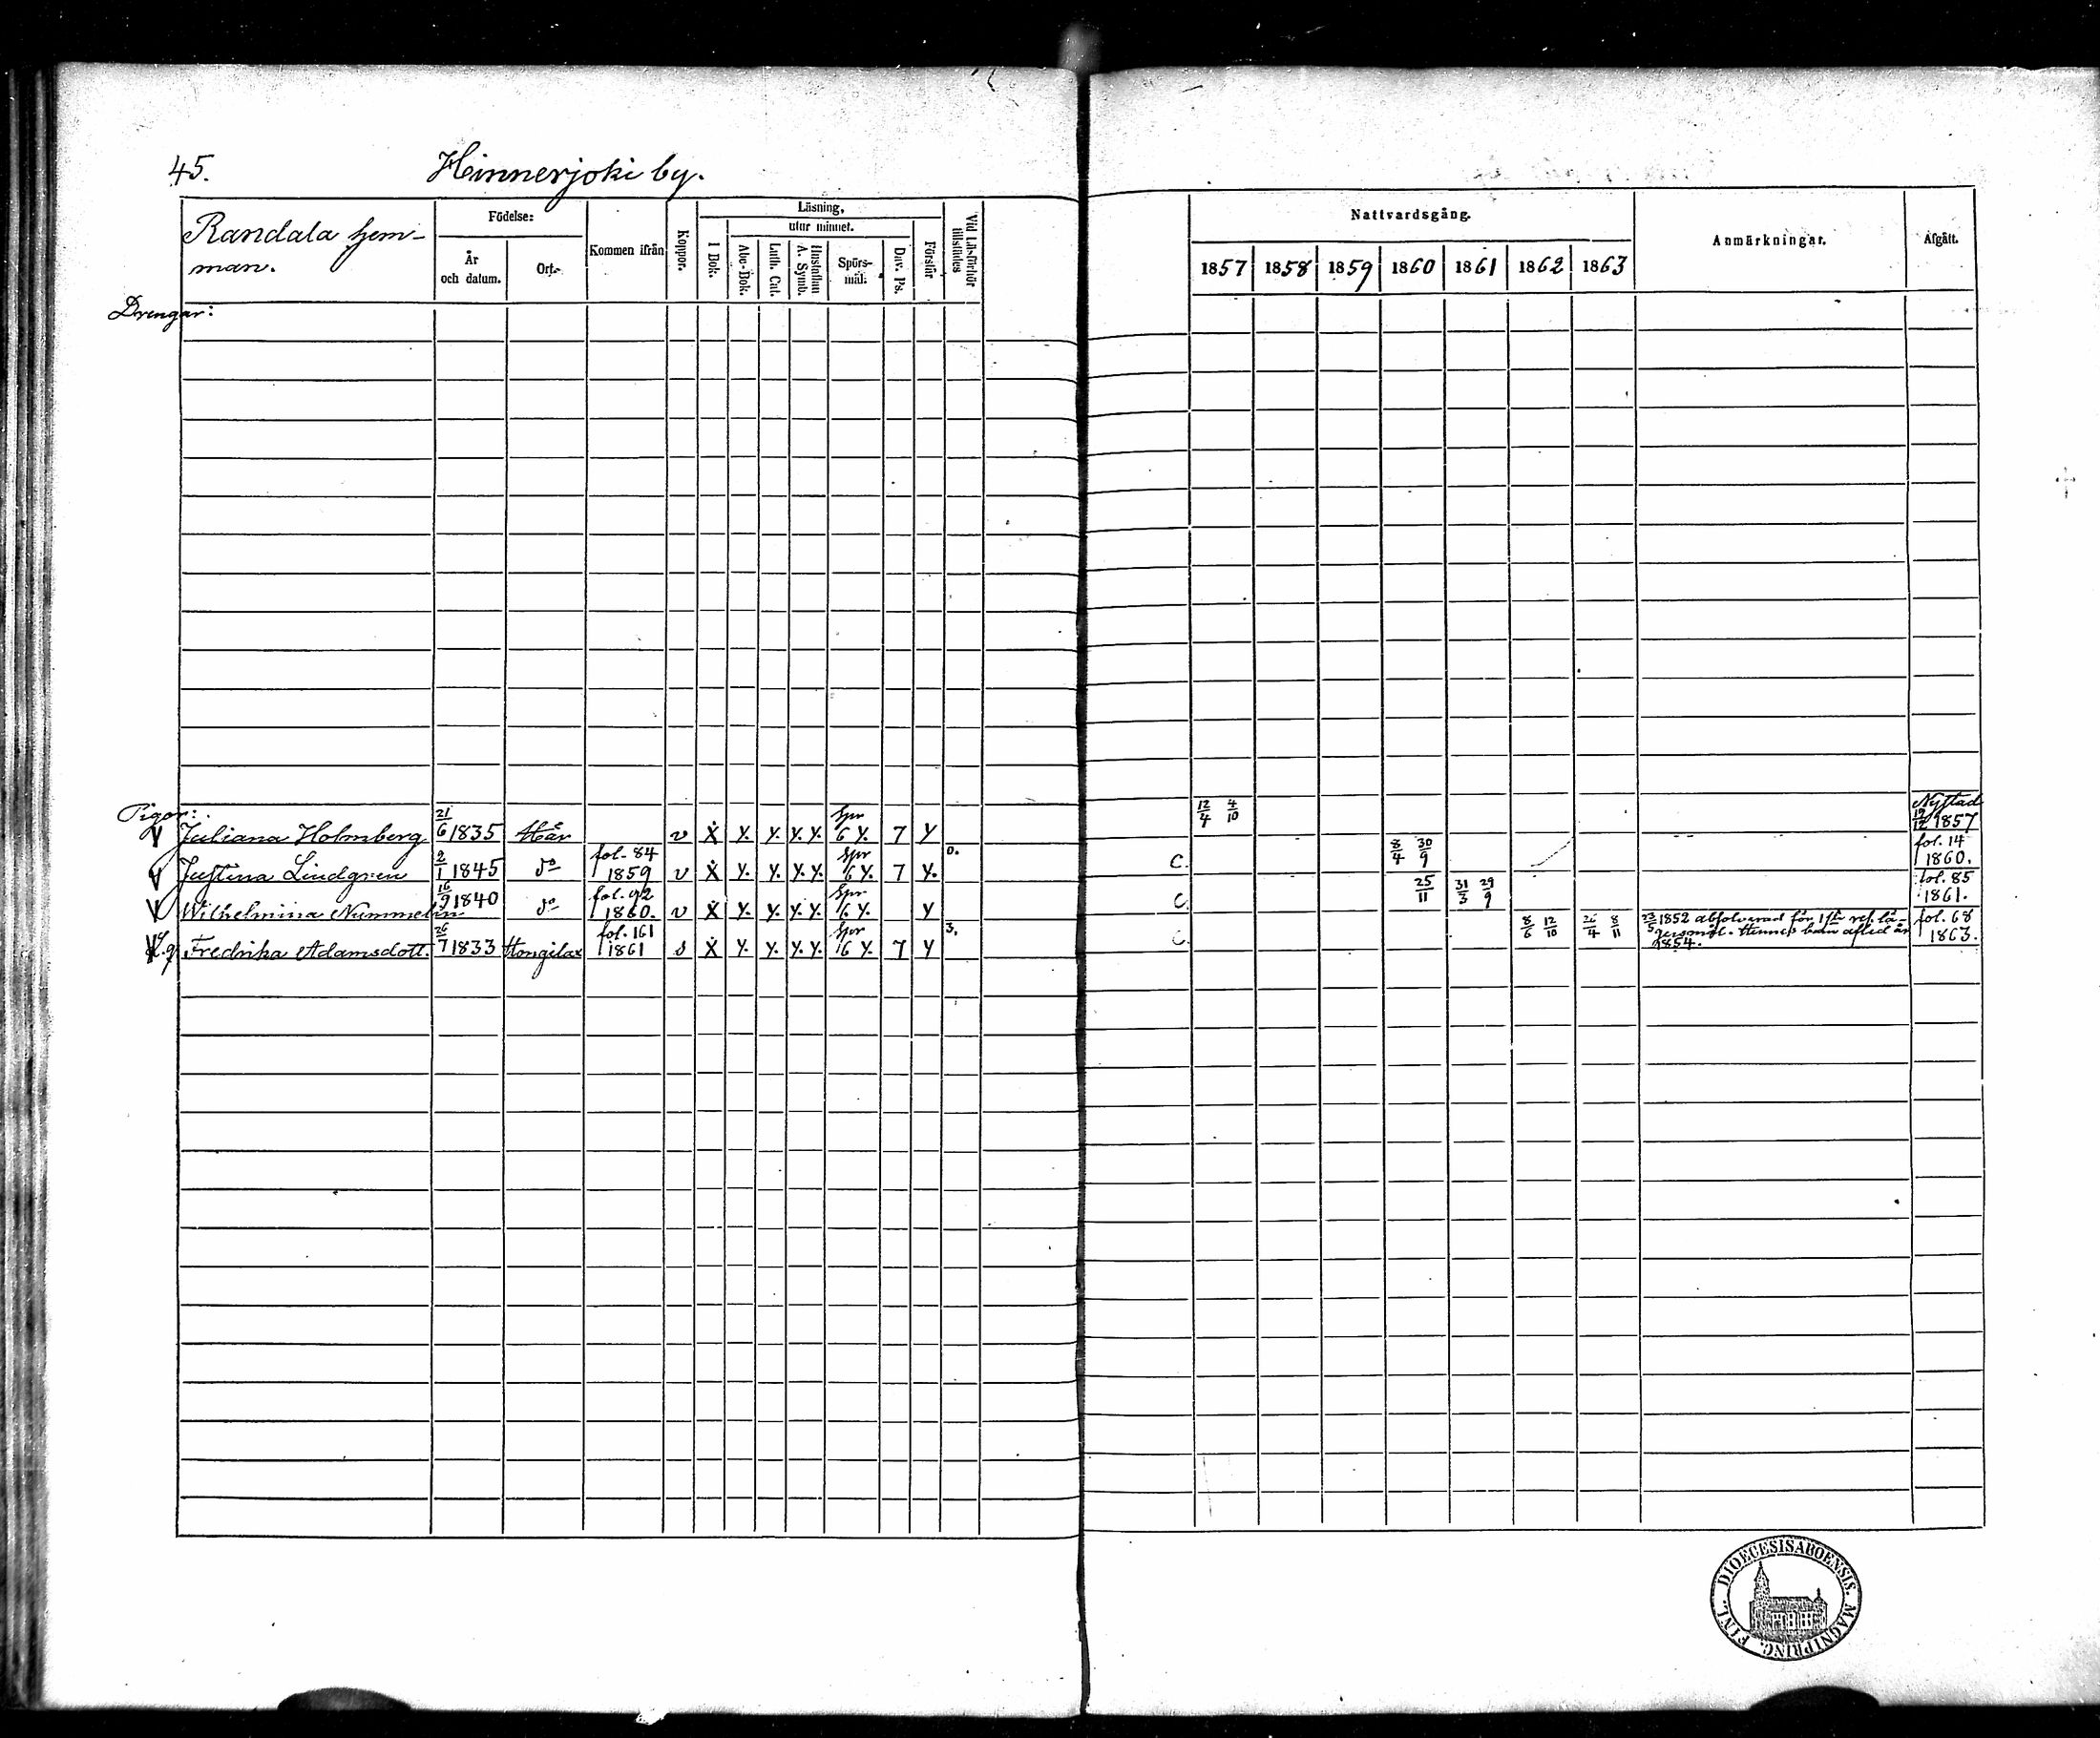 45.
Hinnerjoki by.
Randala hem-
man.
Födelse:
År
och datum.
Ort.
Kommen ifrån
Koppor.
Läsning,
utur minnet.
I Bok.
Abc-Bok.
Luth. Cat.
Hustaflan
A. Symb.
Spörs-
mål.
Dav. Ps.
Förstår
Vid Läsförhör
tillstädes
Nattvardsgång.
1857 1858 1859 1860 1861 1862 1863
Anmärkningar.
Afgått.
Drengar:
Pigor:
V Juliana Holmberg 21/6 1835 Här v X y. y. y. y. Spr 6 y. 7 y 12/4 4/10 Nystad 19/12 1857
V Justina Lindgren 2/1 1845 do fol. 84 1859 v X y. y. y. y. Spr 6 y. 7 y. 0. C. 8/4 30/9 fol. 14 1860.
V Wilhelmina Nummelin 16/9 1840 do fol. 92 1860. v X y. y. y. y. Spr 6 y. y C. 25/11 31/3 29/9 fol. 85 1861.
Fredrika Adamsdott. 26/7 1833 Hongilax fol. 161 1861 s X y. y. y. y. Spr 6 y. 7 y 3. C. 8/6 12/10 26/4 8/11
23/5 1852 absolverad för 1sta res. lä-
gersmål. Hennes barn afled år
1854.
fol. 68
1863.
FINL. DIOECESIS ABOENSIS. MAGNI PRINC.